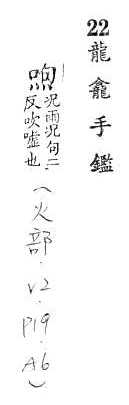 22 龍龕手鑑
喣 况雨况句二
反吹噓也
(火部.V2.P19.A6)